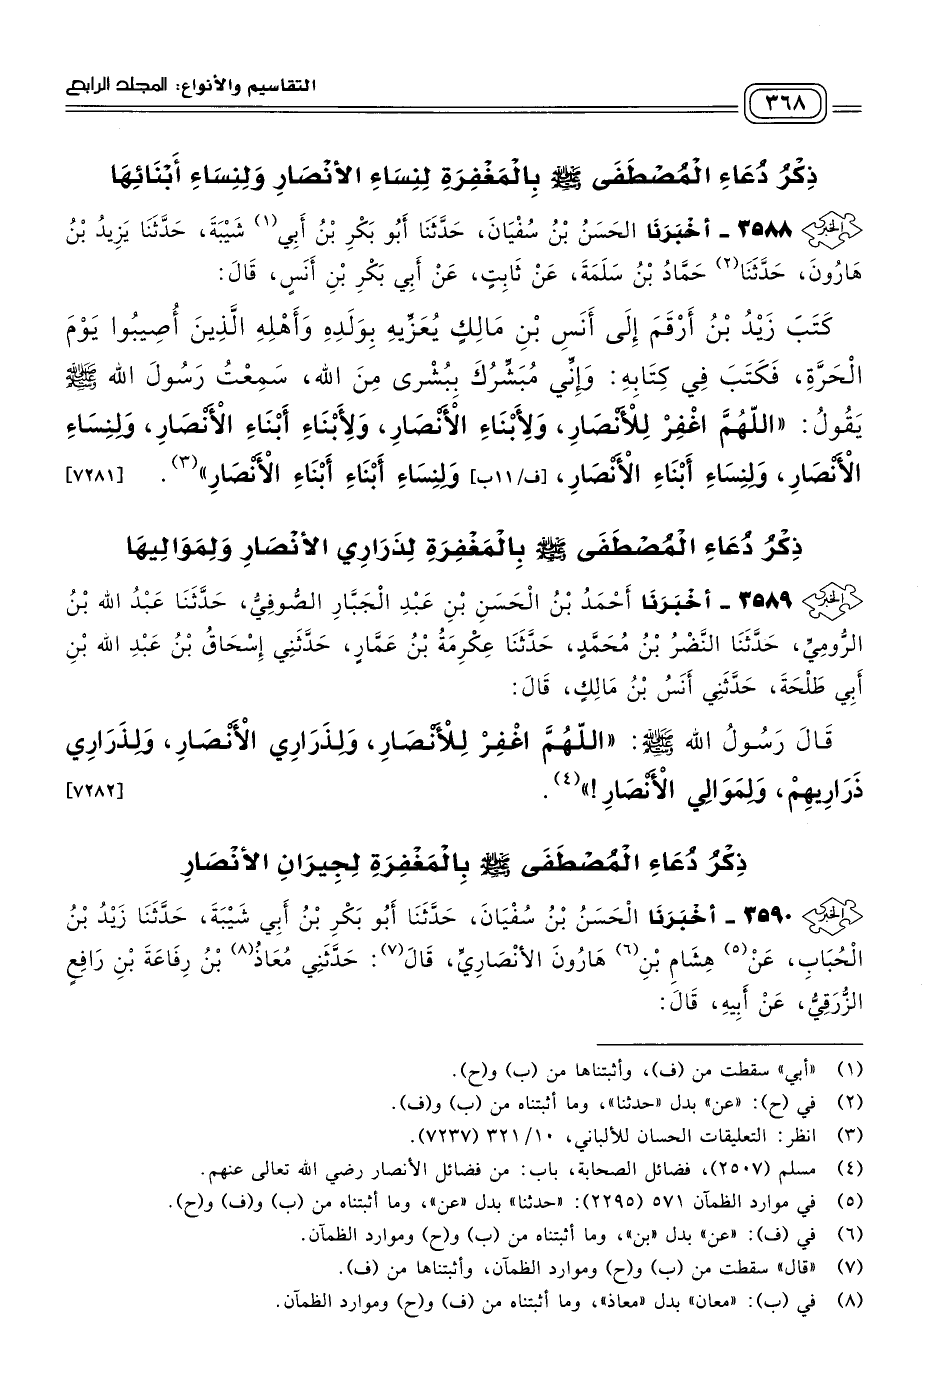 التقاسيم والأنواع: المجلد الرابع
٣٦٨
ذِكْرُ دُعَاءِ الْمُصْطَفَى ﷺ بِالْمَغْفِرَةِ لِنِسَاءِ الأَنْصَارِ وَلِنِسَاءِ أَبْنَائِهَا
٣٥٨٨ - أخْبَرَنَا الحَسَنُ بْنُ سُفْيَانَ، حَدَّثَنَا أَبُو بَكْرِ بْنُ أَبِي(١) شَيْبَةَ، حَدَّثَنَا يَزِيدُ بْنُ
هَارُونَ، حَدَّثَنَا(٢) حَمَّادُ بْنُ سَلَمَةَ، عَنْ ثَابِتٍ، عَنْ أَبِي بَكْرِ بْنِ أَنَسٍ، قَالَ:
كَتَبَ زَيْدُ بْنُ أَرْقَمَ إِلَى أَنَسِ بْنِ مَالِكٍ يُعَزِّيهِ بِوَلَدِهِ وَأَهْلِهِ الَّذِينَ أُصِيبُوا يَوْمَ
الْحَرَّةِ، فَكَتَبَ فِي كِتَابِهِ: وَإِنِّي مُبَشِّرُكَ بِبُشْرى مِنَ الله، سَمِعْتُ رَسُولَ الله ﷺ
يَقُولُ: «اللّهُمَّ اغْفِرْ لِلْأَنْصَارِ، وَلِأَبْنَاءِ الْأَنْصَارِ، وَلِأَبْنَاءِ أَبْنَاءِ الْأَنْصَارِ، وَلِنِسَاءِ
الْأَنْصَارِ، وَلِنِسَاءِ أَبْنَاءِ الْأَنْصَارِ، [ف/١١ب] وَلِنِسَاءِ أَبْنَاءِ أَبْنَاءِ الْأَنْصَارِ»(٣). [٧٢٨١]
ذِكْرُ دُعَاءِ الْمُصْطَفَى ﷺ بِالْمَغْفِرَةِ لِذَرَارِي الأَنْصَارِ وَلِمَوَالِيهَا
٣٥٨٩ - أخْبَرَنَا أَحْمَدُ بْنُ الْحَسَنِ بْنِ عَبْدِ الْجَبَّارِ الصُّوفِيُّ، حَدَّثَنَا عَبْدُ الله بْنُ
الرُّومِيِّ، حَدَّثَنَا النَّضْرُ بْنُ مُحَمَّدٍ، حَدَّثَنَا عِكْرِمَةُ بْنُ عَمَّارٍ، حَدَّثَنِي إِسْحَاقُ بْنُ عَبْدِ الله بْنِ
أَبِي طَلْحَةَ، حَدَّثَنِي أَنَسُ بْنُ مَالِكٍ، قَالَ:
قَالَ رَسُولُ الله ﷺ: «اللّهُمَّ اغْفِرْ لِلْأَنْصَارِ، وَلِذَرَارِي الْأَنْصَارِ، وَلِذَرَارِي
ذَرَارِيهِمْ، وَلِمَوَالِي الْأَنْصَارِ!»(٤). [٧٢٨٢]
ذِكْرُ دُعَاءِ الْمُصْطَفَى ﷺ بِالْمَغْفِرَةِ لِجِيرَانِ الأَنْصَارِ
٣٥٩٠ - أخْبَرَنَا الْحَسَنُ بْنُ سُفْيَانَ، حَدَّثَنَا أَبُو بَكْرِ بْنُ أَبِي شَيْبَةَ، حَدَّثَنَا زَيْدُ بْنُ
الْحُبَابِ، عَنْ(٥) هِشَامِ بْنِ(٦) هَارُونَ الأَنْصَارِيِّ، قَالَ(٧): حَدَّثَنِي مُعَاذُ(٨) بْنُ رِفَاعَةَ بْنِ رَافِعٍ
الزُّرَقِيُّ، عَنْ أَبِيهِ، قَالَ:
(١) «أبي» سقطت من (ف)، وأثبتناها من (ب) و(ح).
(٢) في (ح): «عن» بدل «حدثنا»، وما أثبتناه من (ب) و(ف).
(٣) انظر: التعليقات الحسان للألباني، ٣٢١/١٠ (٧٢٣٧).
(٤) مسلم (٢٥٠٧)، فضائل الصحابة، باب: من فضائل الأنصار رضي الله تعالى عنهم.
(٥) في موارد الظمآن ٥٧١ (٢٢٩٥): «حدثنا» بدل «عن»، وما أثبتناه من (ب) و(ف) و(ح).
(٦) في (ف): «عن» بدل «بن»، وما أثبتناه من (ب) و(ح) وموارد الظمآن.
(٧) «قال» سقطت من (ب) و(ح) وموارد الظمآن، وأثبتناها من (ف).
(٨) في (ب): «معان» بدل «معاذ»، وما أثبتناه من (ف) و(ح) وموارد الظمآن.